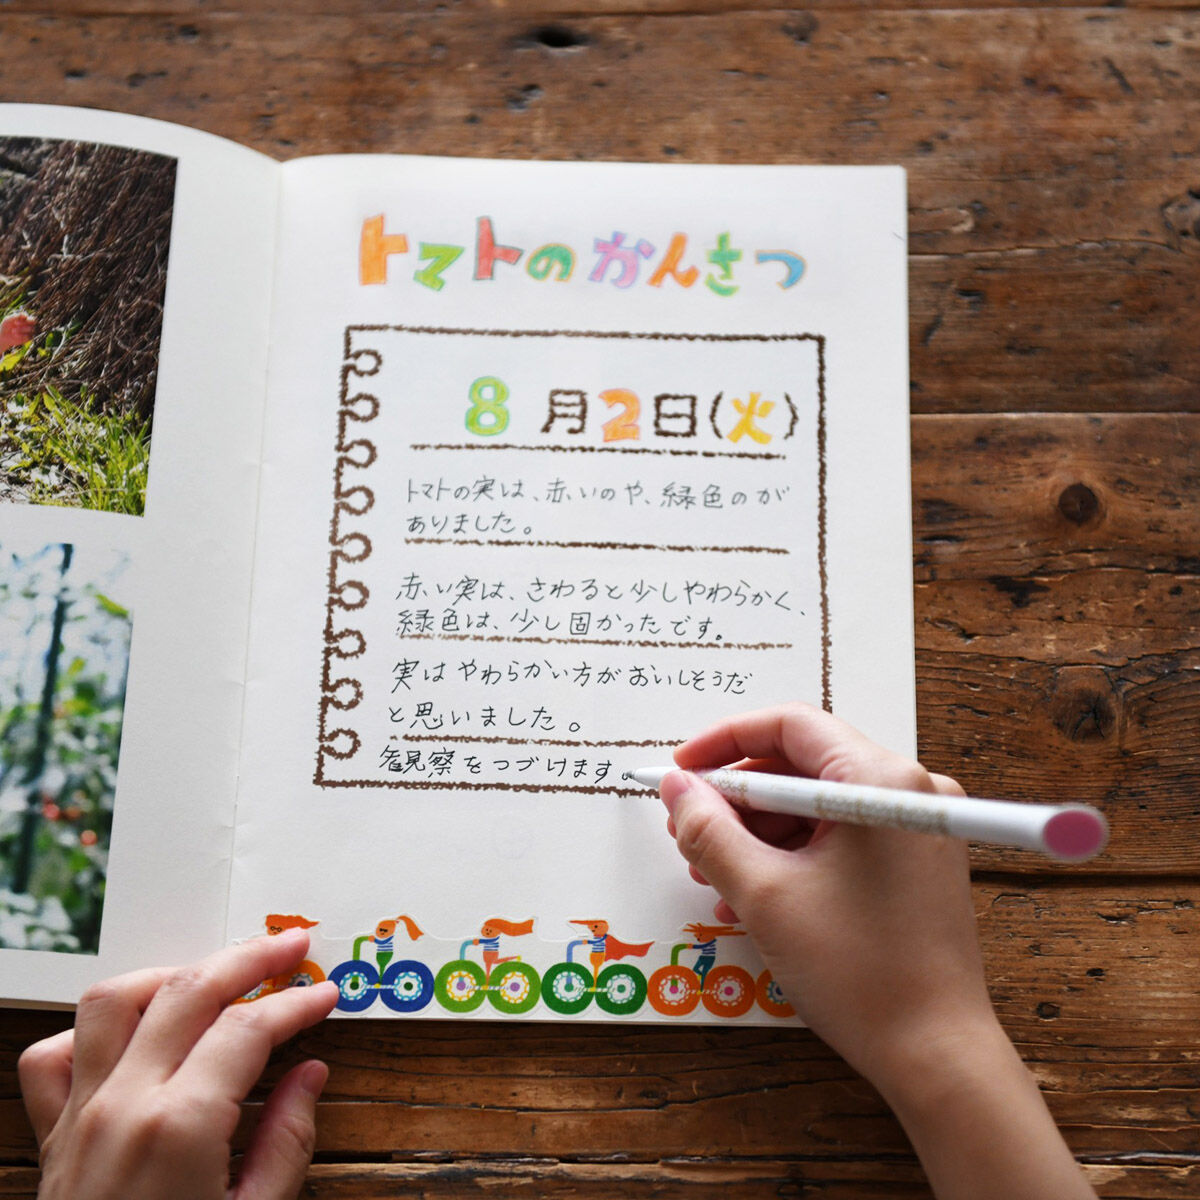 トマトのかんさつ
8月2日(火)
トマトの実は、赤いのや、緑色のが
ありました。
赤い実は、さわると少しやわらかく、
緑色は、少し固かったです。
実はやわらかい方がおいしそうだ
と思いました。
観察をつづけます。